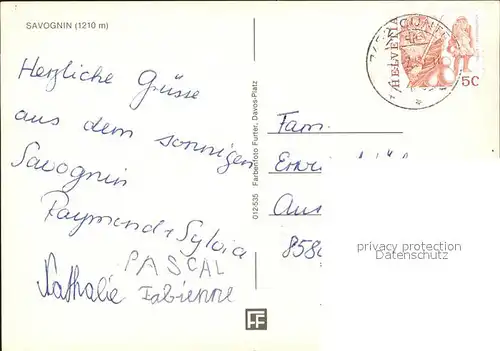 SAVOGNIN (1210 m)
Herzliche Grüsse
aus dem sonnigen
Savognin
Raymond + Sylvia
PASCAL
Nathalie Fabienne
012-535 Farbenfoto Furter, Davos-Platz
FF
HELVETIA
5C
Fam.
858
privacy protection
Datenschutz